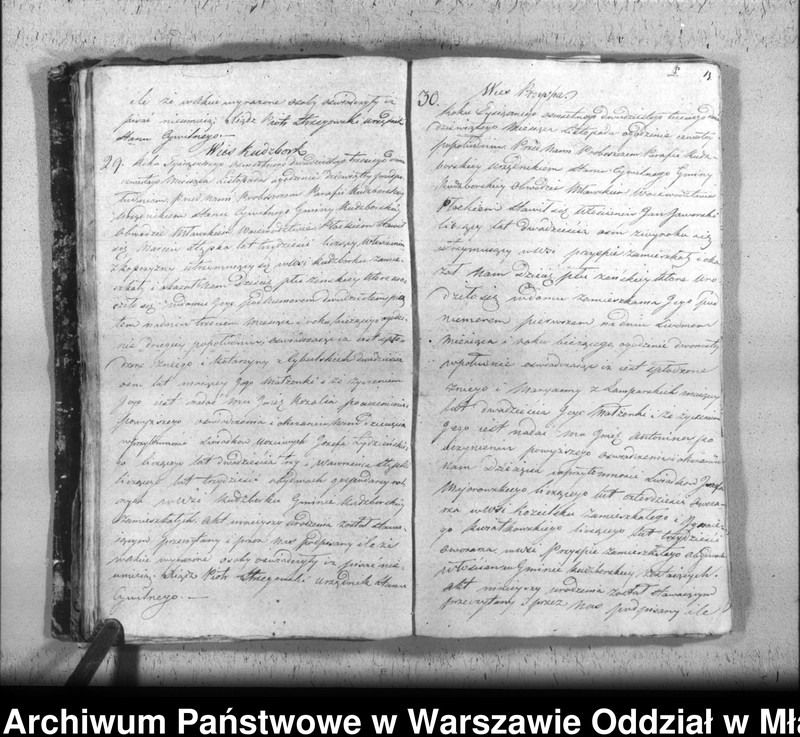 ile że wzkie wyrażone osoby oświadczyły iż
pisać nieumieją Xiądz Piotr Strzegowski Urzędnik
Stanu Cywilnego.
Wieś Kudzbork
29. Roku Tysiącznego osmsetnego dwudziestego trzeciego dnia
Miesiąca Listopada o godzinie dziewiąty
przed Nami Proboszczem Parafii Kudzborskiej
Urzędnikiem Stanu Cywilnego Gminy Kudzborskiej
Obwodzie Mławskim Województwie Płockiem Stawił
się Marcin lat trzydzieści liczący
utrzymujący się w Wsi Kudzborku zamie
szkały i okazał Nam Dziecię płci żeńskiej które uro
dziło się w domu Jego pod Numerem
na dniu trzecim Miesiąca i roku bieżącego o godzi
nie drugiej popołudniu, oświadczając iż jest spło
dzone z niego i Katarzyny z Cybulskich dwadzieścia
osm lat mającej Jego Małżonki i że życzeniem
Jego jest nadać mu Imię Rozalia po uczynieniu
powyższego oświadczenia i okazaniu Nam dziecięcia
w przytomności Świadków Józefa
liczącego lat dwadzieścia trzy i Wawrzeńca
liczącego lat trzydzieści obydwuch gospodarzy
w Wsi Kudzborku Gminie Kudzborskiej
Zamieszkałych. Akt niniejszy urodzenia został stawa
jącym przeczytany i przez Nas podpisany ile że
wyrażone osoby oświadczyły iż pisać nie
umieją. Xiądz Piotr Strzegowski Urzędnik Stanu
Cywilnego.
13
Wieś Przyspa
30. Roku Tysiącznego osmsetnego dwudziestego trzeciego dnia
dziewiątego Miesiąca Listopada o godzinie czwarty
popołudniu Przed Nami Proboszczem Parafii Kudz
borskiej Urzędnikiem Stanu Cywilnego Gminy
Kudzborskiej Obwodzie Mławskim Województwie
Płockiem Stawił się Włościanin Jan Jaworski
liczący lat dwadzieścia osm
utrzymujący w Wsi Przyspie zamieszkały i oka
zał Nam Dziecię płci żeńskiej które uro
dziło się w domu zamieszkania Jego pod
Numerem pierwszem na dniu siódmem
Miesiąca i roku bieżącego o godzinie dwunasty
w południe oświadczając iż jest spłodzone
z niego i Maryanny z Kamparskich mającej
lat dwadzieścia Jego Małżonki i że życzeniem
Jego jest nadać mu Imię Antonina po
uczynieniu powyższego oświadczenia i okazaniu
Nam Dziecięcia w przytomności Świadków Józefa
Majorowskiego liczącego lat czterdzieści
w Wsi Kozielsku zamieszkałego i
go Kwiatkowskiego liczącego lat trzydzieści
owczarza w Wsi Przyspie zamieszkałego obydwuch
w Gminie Kudzborskiej
Akt niniejszy urodzenia został stawającym
przeczytany i przez Nas podpisany ile
Archiwum Państwowe w Warszawie Oddział w Mła